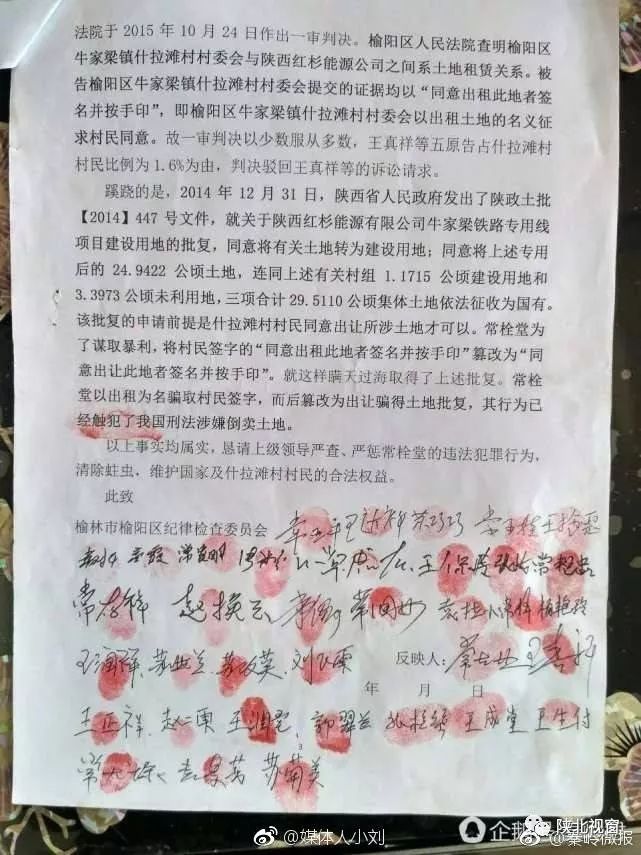 法院于 2015 年 10 月 24 日作出一审判决。榆阳区人民法院查明榆阳区
牛家梁镇什拉滩村村委会与陕西红杉能源公司之间系土地租赁关系。被
告榆阳区牛家梁镇什拉滩村村委会提交的证据均以“同意出租此地者签
名并按手印”，即榆阳区牛家梁镇什拉滩村村委会以出租土地的名义征
求村民同意。故一审判决以少数服从多数，王真祥等五原告占什拉滩村
村民比例为 1.6%为由，判决驳回王真祥等的诉讼请求。
蹊跷的是，2014 年 12 月 31 日，陕西省人民政府发出了陕政土批
【2014】447 号文件，就关于陕西红杉能源有限公司牛家梁铁路专用线
项目建设用地的批复，同意将有关土地转为建设用地；同意将上述专用
后的 24.9422 公顷土地，连同上述有关村组 1.1715 公顷建设用地和
3.3973 公顷未利用地，三项合计 29.5110 公顷集体土地依法征收为国有。
该批复的申请前提是什拉滩村村民同意出让所涉土地才可以。常栓堂为
了谋取暴利，将村民签字的“同意出租此地者签名并按手印”篡改为“同
意出让此地者签名并按手印”。就这样瞒天过海取得了上述批复。常栓
堂以出租为名骗取村民签字，而后篡改为出让骗得土地批复，其行为已
经触犯了我国刑法涉嫌倒卖土地。
以上事实均属实，恳请上级领导严查、严惩常栓堂的违法犯罪行为，
清除蛀虫，维护国家及什拉滩村村民的合法权益。
此致
榆林市榆阳区纪律检查委员会
反映人：
年 月 日
王正祥 赵二面 郭翠兰 王成堂 王生付
3
@媒体人小刘
陕北视窗
@秦岭微报